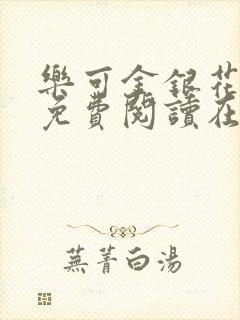 樂可金銀花
免費閱讀在
蕪菁白湯